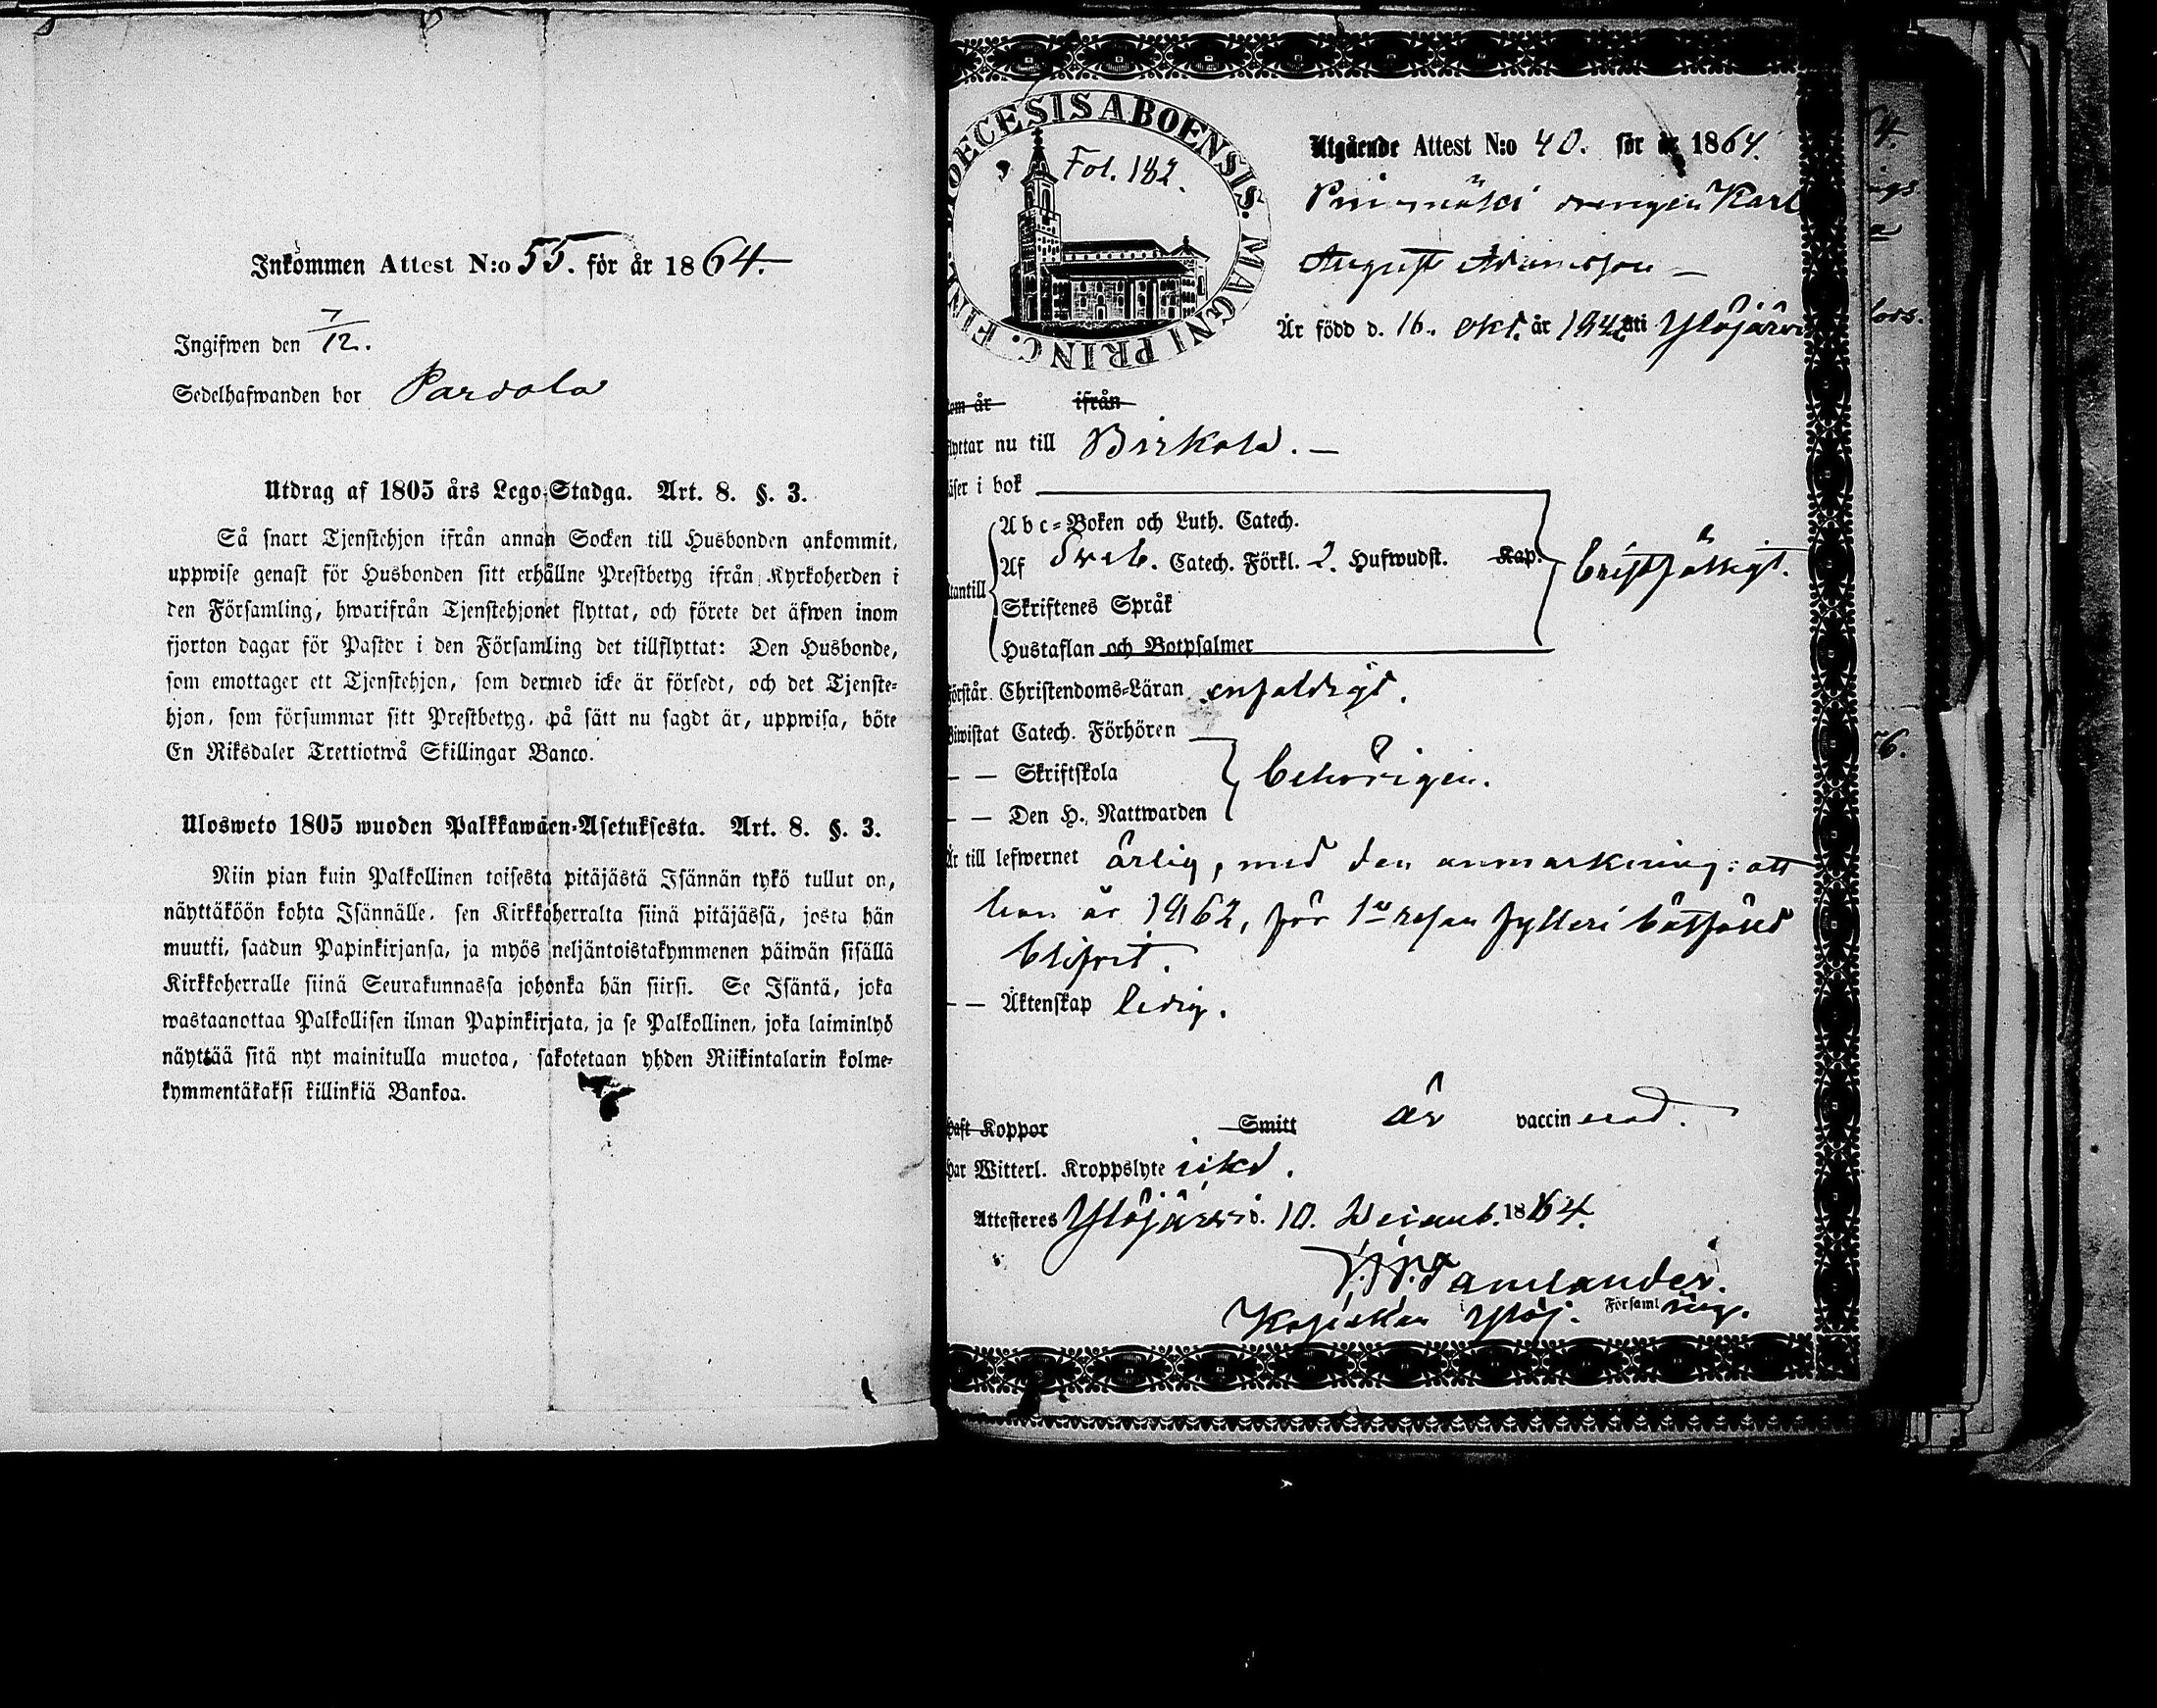 Inkommen Attest N:o 55. för år 1864.
Ingifwen den 7/12.
Sedelhafwanden bor Pardola
Utdrag af 1805 års Lego-Stadga. Art. 8. §. 3.
Så snart Tjenstehjon ifrån annan Socken till Husbonden ankommit,
uppwise genast för Husbonden sitt erhållne Prestbetyg ifrån Kyrkoherden i
den Församling, hwarifrån Tjenstehjonet flyttat, och förete det äfwen inom
fjorton dagar för Pastor i den Församling det tillflyttat: Den Husbonde,
som emottager ett Tjenstehjon, som dermed icke är försedt, och det Tjenste-
hjon, som försummar sitt Prestbetyg, på sätt nu sagdt är, uppwisa, böte
En Riksdaler Trettiotwå Skillingar Banco.
Ulosweto 1805 wuoden Palkkawäen-Asetuksesta. Art. 8. §. 3.
Niin pian kuin Palkollinen toisesta pitäjästä Isännän tykö tullut on,
näyttäköön kohta Isännälle, sen Kirkkoherralta siinä pitäjässä, josta hän
muutti, saadun Papinkirjansa, ja myös neljäntoistakymmenen päiwän sisällä
Kirkkoherralle siinä Seurakunnassa johonka hän siirsi. Se Isäntä, joka
wastaanottaa Palkollisen ilman Papinkirjata, ja se Palkollinen, joka laiminlyö
näyttää sitä nyt mainitulla muotoa, sakotetaan yhden Riikintalarin kolme-
kymmentäkaksi killinkiä Bankoa.
DIOECESIS ABOENSIS. MAGNI PRINC. FINL.
Fol. 182.
Utgående Attest N:o 40. för år 1864.
drengen Karl
August Adamsson
Är född d. 16. Okt. år 1842 uti Ylöjärvi
kom år ifrån
flyttar nu till Birkala.
läser i bok
Abc-Boken och Luth. Catech.
utantill Af Sveb. Catech. Förkl. 2. Hufwudst. Kap. bristfälligt.
Skriftenes Språk
Hustaflan och Botpsalmer
förstår Christendoms-Läran enfaldigt.
Biwistat Catech. Förhören
— — Skriftskola behörigen.
— — Den H. Nattwarden
Är till lefwernet ärlig, med den anmärkning: att
han år 1862, för 1:a resan fylleri bötfäld
blifvit.
— — Äktenskap ledig.
Haft Koppor Smitt är vaccinerad.
Har Witterl. Kroppslyte ickd.
Attesteres Ylöjärvi d. 10. Decemb. 1864.
Tamlander.
Kapellan i Ylöj. Församling.